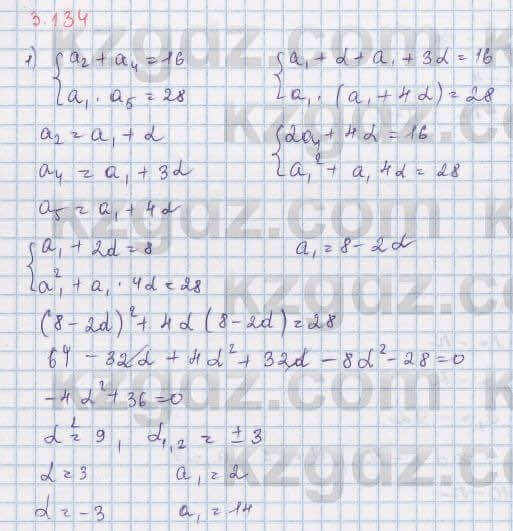 3.134
1) {a₂ + a₄ = 16 {a₁ + d + a₁ + 3d = 16
{a₁ · a₅ = 28 {a₁ · (a₁ + 4d) = 28
a₂ = a₁ + d {2a₁ + 4d = 16
a₄ = a₁ + 3d {a₁² + a₁ 4d = 28
a₅ = a₁ + 4d
{a₁ + 2d = 8 a₁ = 8 - 2d
{a₁² + a₁ · 4d = 28
(8 - 2d)² + 4d (8 - 2d) = 28
64 - 32d + 4d² + 32d - 8d² - 28 = 0
-4d² + 36 = 0
d² = 9, d₁,₂ = ± 3
d = 3 a₁ = 2
d = -3 a₁ = 14
kzgdz.com